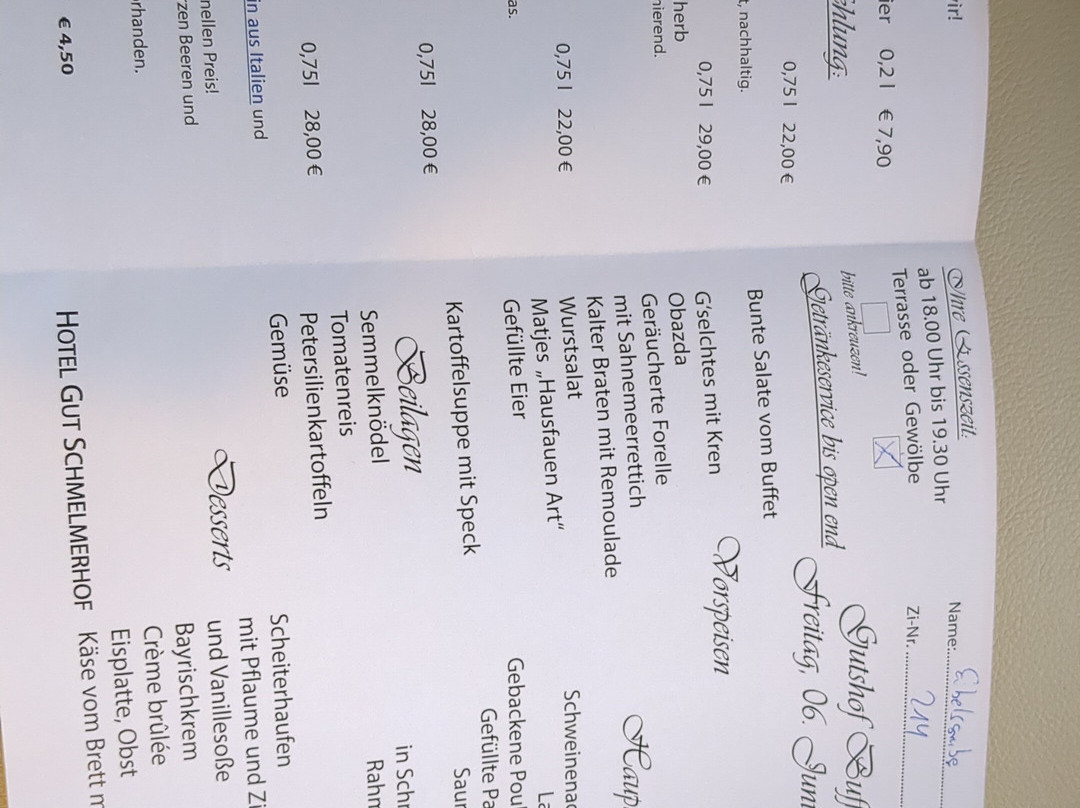 vir!
ier 0,2 l € 7,90
ehlung:
0,75 l 22,00 €
t, nachhaltig.
0,75 l 29,00 €
herb
nierend.
0,75 l 22,00 €
as.
0,75l 28,00 €
0,75l 28,00 €
in aus Italien und
nellen Preis!
zen Beeren und
rhanden.
€ 4,50
Ihre Essenszeit:
ab 18.00 Uhr bis 19.30 Uhr
Terrasse oder Gewölbe
bitte ankreuzen!
Getränkeservice bis open end
Name:
Zi-Nr. 214
Gutshof Buf
Freitag, 06. Juni
Vorspeisen
Bunte Salate vom Buffet
G'selchtes mit Kren
Obazda
Geräucherte Forelle
mit Sahnemeerrettich
Kalter Braten mit Remoulade
Wurstsalat
Matjes „Hausfauen Art"
Gefüllte Eier
Kartoffelsuppe mit Speck
Haup
Schweinenac
La
Gebackene Poul
Gefüllte Pa
Saur
in Schr
Rahm
Beilagen
Semmelknödel
Tomatenreis
Petersilienkartoffeln
Gemüse
Desserts
Scheiterhaufen
mit Pflaume und Zi
und Vanillesoße
Bayrischkrem
Crème brûlée
Eisplatte, Obst
Käse vom Brett m
HOTEL GUT SCHMELMERHOF